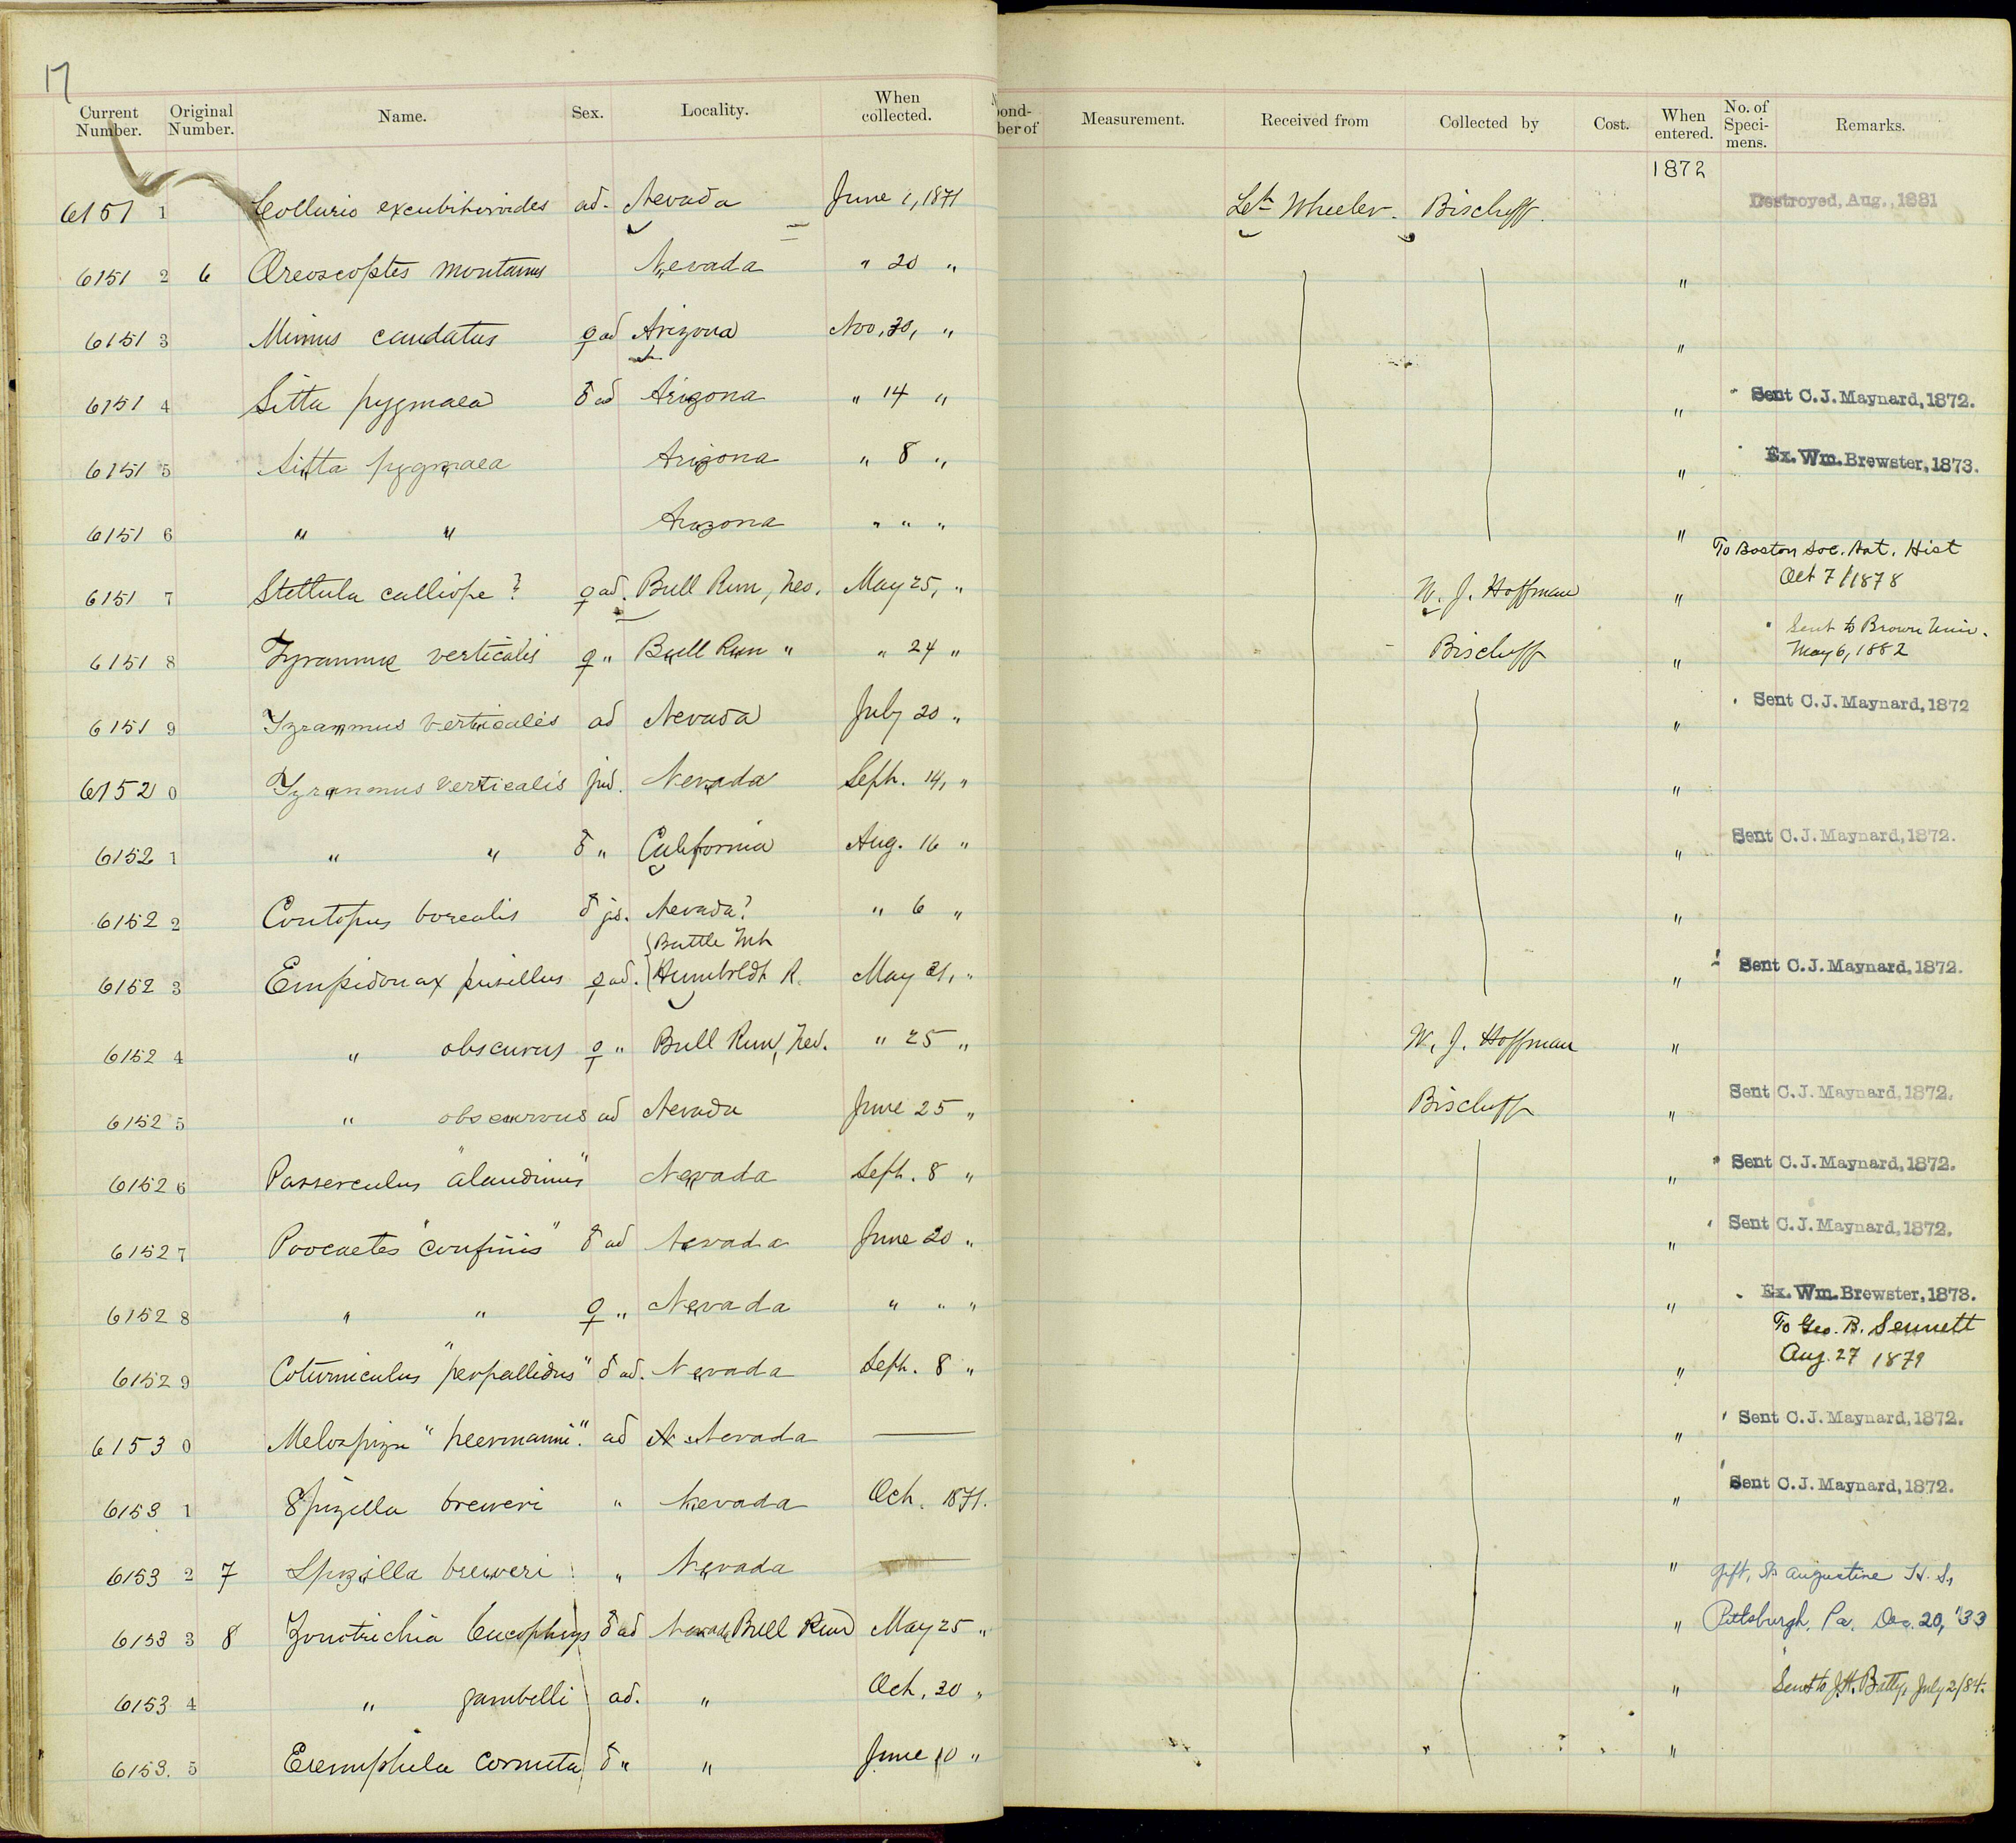 17
Current Number. Original Number. Name. Sex. Locality. When collected. ond- ber of Measurement. Received from Collected by Cost. When entered. No. of Speci- mens. Remarks.
1872
61511 Collurio excubitoroides ad. Nevada June 1, 1871 Lt. Wheeler. Bischoff. Destroyed, Aug., 1881
61512 6 Oreoscoptes montanus Nevada " 20 " "
61513 Mimus caudatus ♀ ad Arizona Nov, 30, " "
61514 Sitta pygmaea ♂ ad Arizona " 14 " " Sent C. J. Maynard, 1872.
61515 Sitta pygmaea Arizona " 8 " " Ex. Wm. Brewster, 1873.
61516 " " Arizona " " " "
61517 Stellula calliope? ♀ ad. Bull Run, Nev. May 25, " W. J. Hoffman " To Boston Soc. Nat. Hist Oct 7/1878
61518 Tyrannus verticalis ♀ " Bull Run " " 24 " Bischoff " Sent to Brown Univ. May 6, 1882
61519 Tyrannus verticalis ad Nevada July 20 " " Sent C. J. Maynard, 1872
61520 Tyrannus verticalis jud. Nevada Sept. 14, " "
61521 " " ♂ " California Aug. 16 " " Sent C. J. Maynard, 1872.
61522 Contopus borealis ♂ Nevada? " 6 " "
61523 Empidonax pusillus ♀ ad. {Battle Mt Humboldt R. May 21, " " Sent C. J. Maynard, 1872.
61524 " obscurus ♀ " Bull Run, Nev. " 25 " W. J. Hoffman "
61525 " obscurus ad Nevada June 25 " Bischoff " Sent C. J. Maynard, 1872.
61526 Passerculus "alaudinus" Nevada Sept. 8 " " Sent C. J. Maynard, 1872.
61527 Poocaetes "confinis" ♂ ad Nevada June 20 " " Sent C. J. Maynard, 1872.
61528 " " ♀ " Nevada " " " " Ex. Wm. Brewster, 1873.
61529 Coturniculus "perpallidus" ♂ ad. Nevada Sept. 8 " " To Geo. B. Sennett Aug. 27 1879
61530 Melospiza "heermanni". ad Nevada — " Sent C. J. Maynard, 1872.
61531 Spizella breweri " Nevada Oct. 1871. " Sent C. J. Maynard, 1872.
61532 7 Spizella breweri " Nevada — "
61533 8 Zonotrichia leucophrys ♂ ad Nevada Bull Run May 25 " " Gift, St Augustine H. S., Pittsburgh, Pa. Dec. 20, '33
61534 " gambelli ad. " Oct, 30 " " Sent to J. H. Batty, July 2/84.
61535 Eremophila cornuta ♂ " " June 10 " " "